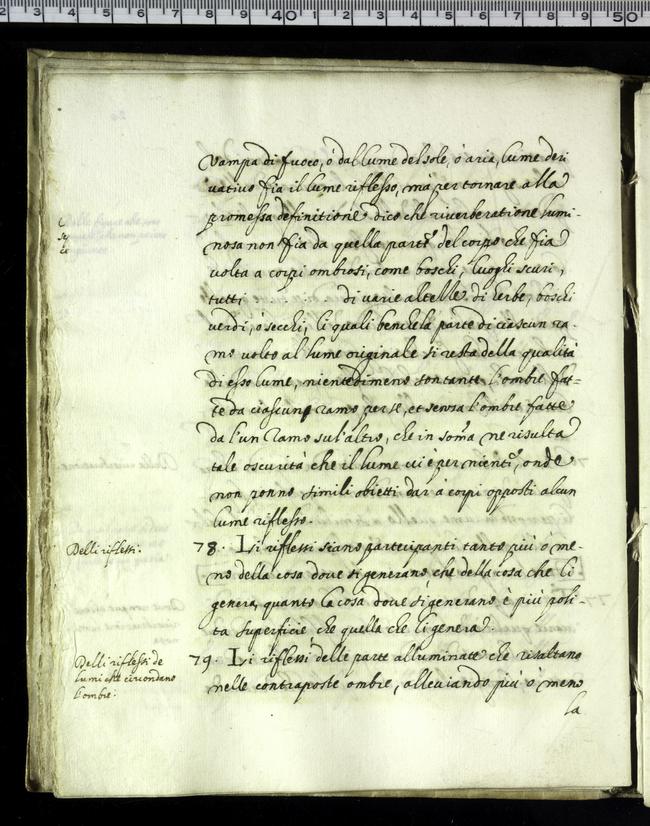 vampa di fuoco, ò dal lume del sole, ò aria, lume deri
vativo fia il lume riflesso, mà per tornare alla
promessa definitione dico che riverberatione lumi-
nosa non fia da quella parte del corpo che fia
volta a corpi ombrosi, come boschi, luoghi scuri,
tutti di varie altelle di herbe, boschi
verdi, ò secchi, li quali benche la parte di ciascun ra-
mo volto al lume originale si vesta della qualità
di esso lume, nientedimeno son tante l'ombre fat-
te da ciascun ramo per se, et senza l'ombre fatte
da l'un ramo sul'altro, che in soma ne risulta
tale oscurità che il lume vi è per niente, onde
non ponno simili obietti dar à corpi opposti alcun
lume riflesso.
Delli riflessi.
78. Li riflessi siano partecipanti tanto più ò me-
no della cosa dove si generano, che della cosa che li
genera, quanto la cosa dove si generano è più poli-
ta superficie che quella che li genera
Delli riflessi de
lumi che circondano
l'ombre.
79. Li riflessi delle parte alluminate che risaltano
nelle contraposte ombre, alleviando più ò meno
la
40
50